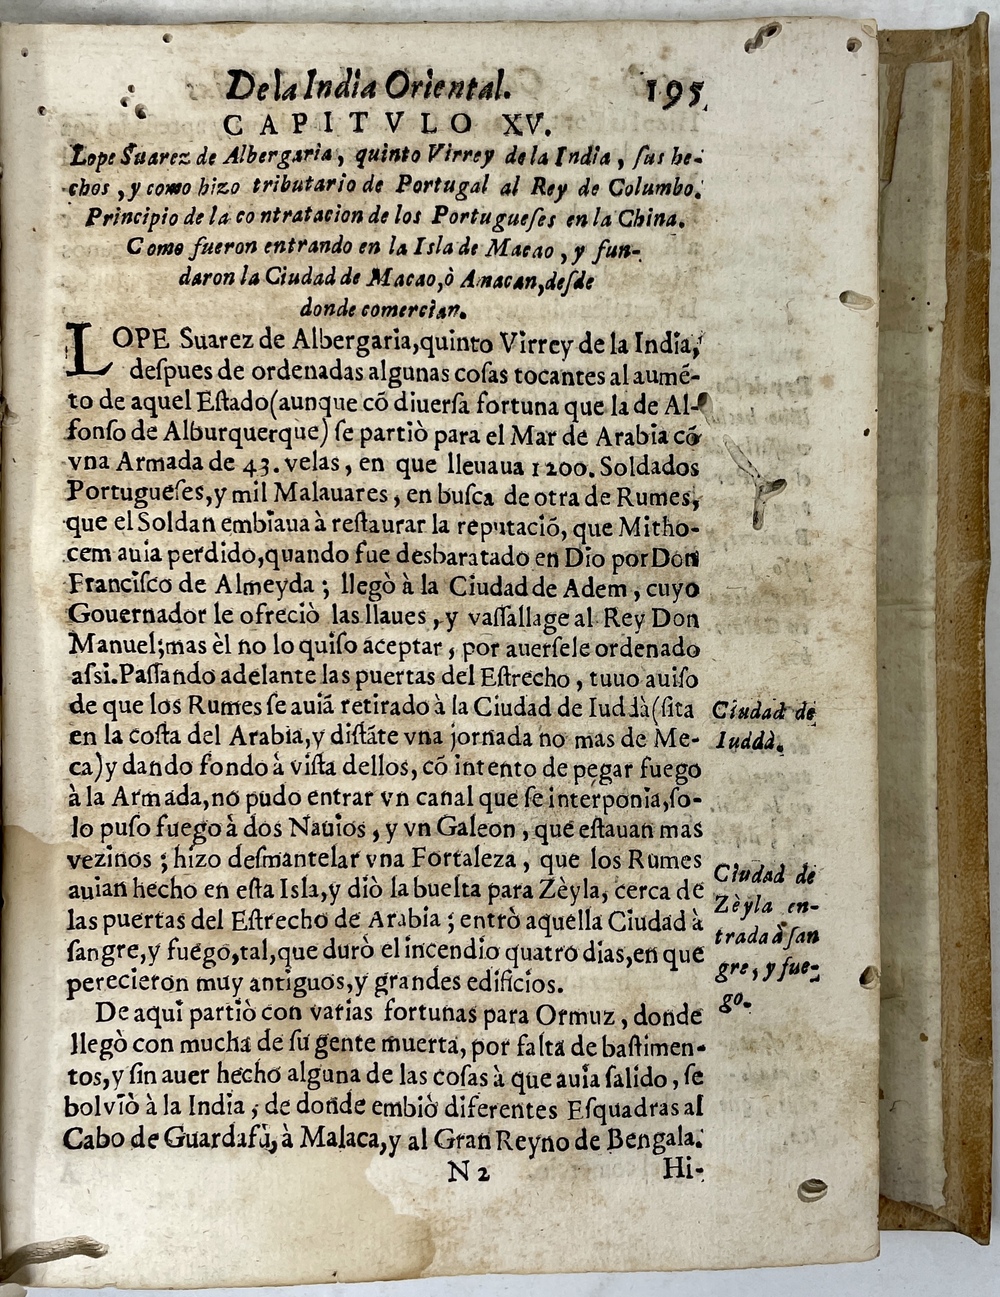 De la India Oriental. 195
CAPITVLO XV.
Lope Suarez de Albergaria, quinto Virrey de la India, ſus he-
chos, y como hizo tributario de Portugal al Rey de Columbo.
Principio de la contratacion de los Portugueſes en la China.
Como fueron entrando en la Isla de Macao, y fun-
daron la Ciudad de Macao, ò Amacan, deſde
donde comercian.
LOPE Suarez de Albergaria, quinto Virrey de la India,
deſpues de ordenadas algunas coſas tocantes al aumē-
to de aquel Eſtado (aunque cō diuerſa fortuna que la de Al-
fonſo de Alburquerque) ſe partiò para el Mar de Arabia cō
vna Armada de 43. velas, en que lleuaua 1200. Soldados
Portugueſes, y mil Malauares, en buſca de otra de Rumes,
que el Soldan embiaua à reſtaurar la reputaciō, que Mitho-
cem auia perdido, quando fue desbaratado en Dio por Don
Franciſco de Almeyda; llegò à la Ciudad de Adem, cuyo
Gouernador le ofreciò las llaues, y vaſſallage al Rey Don
Manuel; mas èl no lo quiſo aceptar, por auerſele ordenado
aſsi. Paſſando adelante las puertas del Eſtrecho, tuuo auiſo
de que los Rumes ſe auiā retirado à la Ciudad de Iuddà (ſita
en la coſta del Arabia, y diſtāte vna jornada no mas de Me-
ca) y dando fondo à viſta dellos, cō intento de pegar fuego
à la Armada, no pudo entrar vn canal que ſe interponia, ſo-
lo puſo fuego à dos Nauios, y vn Galeon, que eſtauan mas
vezinos; hizo deſmantelar vna Fortaleza, que los Rumes
auian hecho en eſta Isla, y diò la buelta para Zèyla, cerca de
las puertas del Eſtrecho de Arabia; entrò aquella Ciudad à
ſangre, y fuego, tal, que durò el incendio quatro dias, en que
perecieron muy antiguos, y grandes edificios.
De aqui partiò con varias fortunas para Ormuz, donde
llegò con mucha de ſu gente muerta, por falta de baſtimen-
tos, y ſin auer hecho alguna de las coſas à que auia ſalido, ſe
bolviò à la India, de donde embiò diferentes Eſquadras al
Cabo de Guardafù, à Malaca, y al Gran Reyno de Bengala.
N 2 Hi-
Ciudad de
Iuddà.
Ciudad de
Zèyla en-
trada à ſan
gre, y fue-
go.